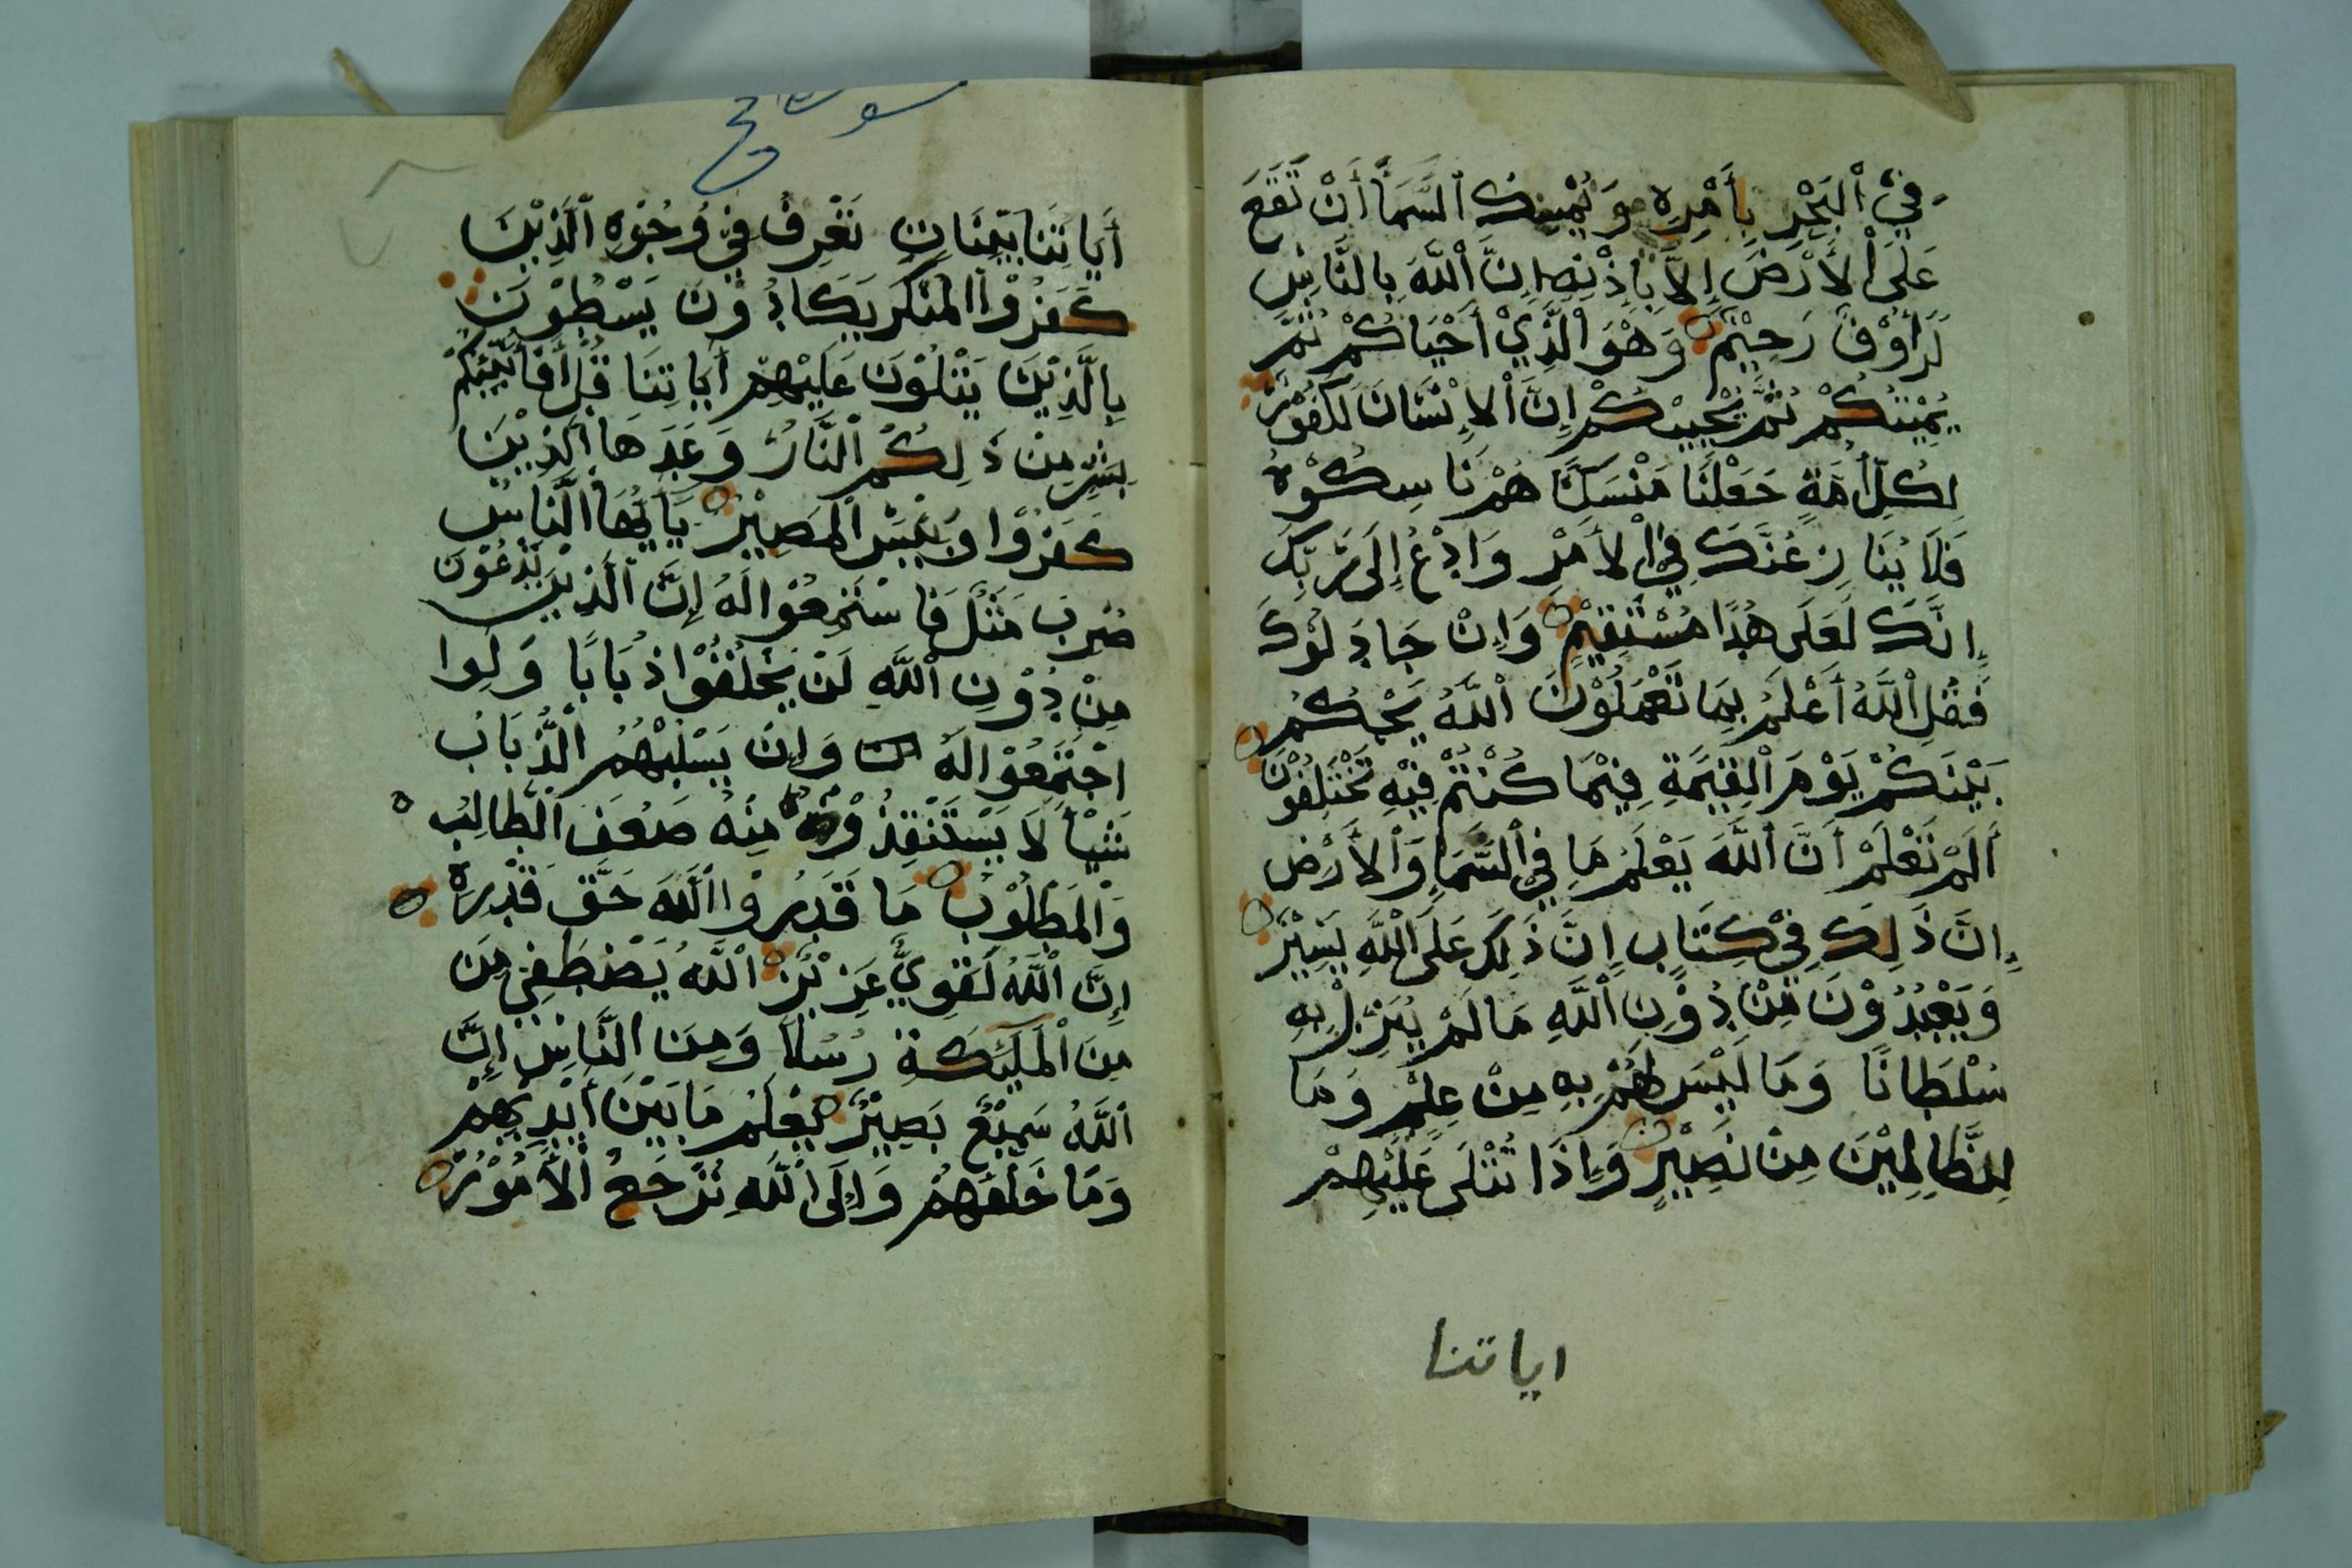 في ٱلْبَحْرِ بِأَمْرِهِ وَيُمْسِكُ ٱلسَّمَآ أَنْ تَقَعَ
عَلَى ٱلْأَرْضِ إِلَّا بِإِذْنِهِ إِنَّ ٱللَّهَ بِالنَّاسِ
لَرَأُوْفٌ رَحِيْمٌ وَهْوَ ٱلَّذِيْ أَحْيَاكُمْ ثُمَّ
يُمِيْتُكُمْ ثُمَّ يُحْيِيْكُمْ إِنَّ ٱلْإِنْسَانَ لَكَفُوْرٌ
لِكُلِّ أُمَّةٍ جَعَلْنَا مَنْسَكًا هُمْ نَاسِكُوْهُ
فَلَا يُنَازِعُنَّكَ فِي ٱلْأَمْرِ وَادْعُ إِلَى رَبِّكَ
إِنَّكَ لَعَلَى هُدًا مُسْتَقِيْمٍ وَإِنْ جَادَلُوْكَ
فَقُلِ ٱللَّهُ أَعْلَمُ بِمَا تَعْمَلُوْنَ ٱللَّهُ يَحْكُمُ
بَيْنَكُمْ يَوْمَ ٱلْقِيَمَةِ فِيْمَا كُنْتُمْ فِيْهِ تَخْتَلِفُوْنَ
أَلَمْ تَعْلَمْ أَنَّ ٱللَّهَ يَعْلَمُ مَا فِي ٱلسَّمَآءِ وَٱلْأَرْضِ
إِنَّ ذَلِكَ فِيْ كِتَابٍ إِنَّ ذَلِكَ عَلَى ٱللَّهِ يَسِيْرٌ
وَيَعْبُدُوْنَ مِنْ دُوْنِ ٱللَّهِ مَا لَمْ يُنَزِّلْ بِهِ
سُلْطَانًا وَمَا لَيْسَ لَهُمْ بِهِ مِنْ عِلْمٍ وَمَا
لِلظَّالِمِيْنَ مِنْ نَصِيْرٍ وَإِذَا تُتْلَى عَلَيْهِمْ
اياتنا
أَيَاتُنَا بَيِّنَاتٍ تَعْرِفُ فِي وُجُوْهِ ٱلَّذِيْنَ
كَفَرُوْا ٱلْمُنْكَرَ يَكَادُوْنَ يَسْطُوْنَ
بِالَّذِيْنَ يَتْلُوْنَ عَلَيْهِمْ أَيَاتِنَا قُلْ أَفَأُنَبِّئُكُمْ
بِشَرٍّ مِنْ ذَلِكُمُ ٱلنَّارُ وَعَدَهَا ٱلَّذِيْنَ
كَفَرُوْا وَبِئْسَ ٱلْمَصِيْرُ يَأَيُّهَا ٱلنَّاسُ
ضُرِبَ مَثَلٌ فَاسْتَمِعُوْا لَهُ إِنَّ ٱلَّذِيْنَ تَدْعُوْنَ
مِنْ دُوْنِ ٱللَّهِ لَنْ يَخْلُقُوْا ذُبَابًا وَلَوا
اجْتَمَعُوْا لَهُ وَإِنْ يَسْلُبْهُمُ ٱلذُّبَابُ
شَيْأً لَا يَسْتَنْقِذُوْهُ مِنْهُ ضَعُفَ ٱلطَّالِبُ
وَٱلْمَطْلُوْبُ مَا قَدَرُوْا ٱللَّهَ حَقَّ قَدْرِهِ
إِنَّ ٱللَّهَ لَقَوِيٌّ عَزِيْزٌ ٱللَّهُ يَصْطَفِي مِنَ
مِنَ ٱلْمَلَئِكَةِ رُسُلًا وَمِنَ ٱلنَّاسِ إِنَّ
ٱللَّهَ سَمِيْعٌ بَصِيْرٌ يَعْلَمُ مَا بَيْنَ أَيْدِيْهِمْ
وَمَا خَلْفَهُمْ وَإِلَى ٱللَّهِ تُرْجَعُ ٱلْأُمُوْرُ